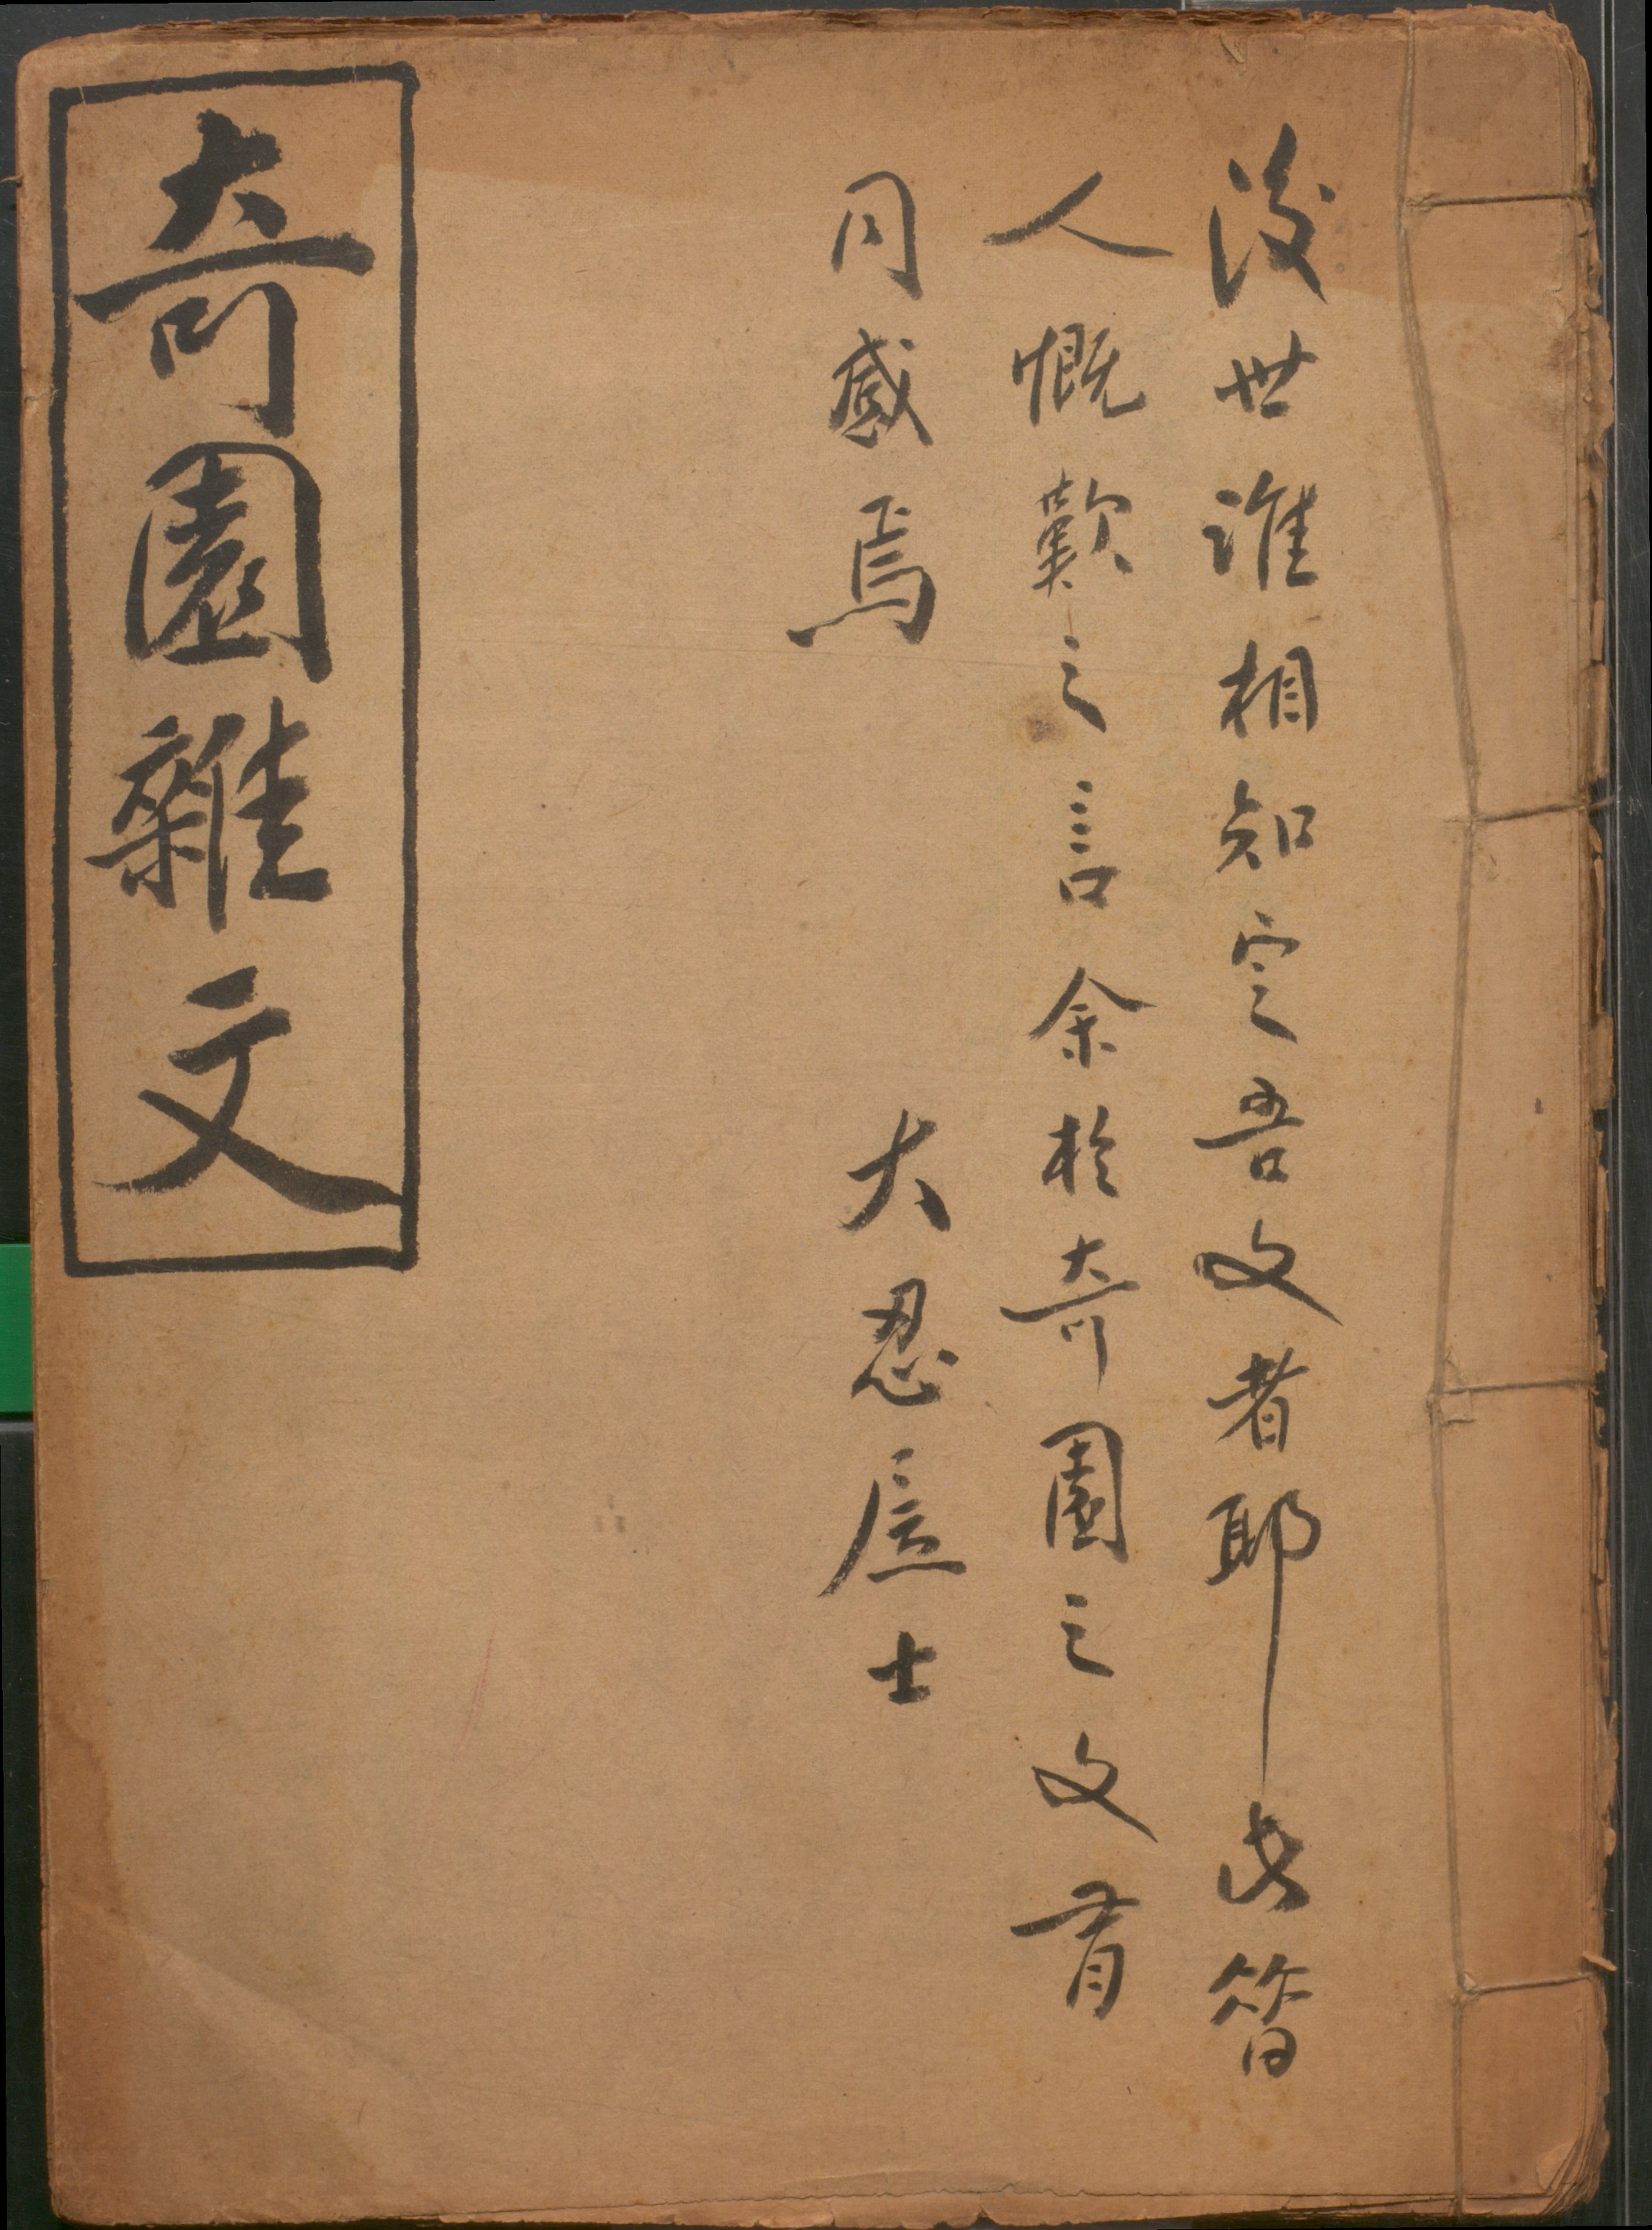 後世誰相知定吾文者耶此昔
人慨歎之言余於奇園之文有
同感焉
大忍士
奇園雜文